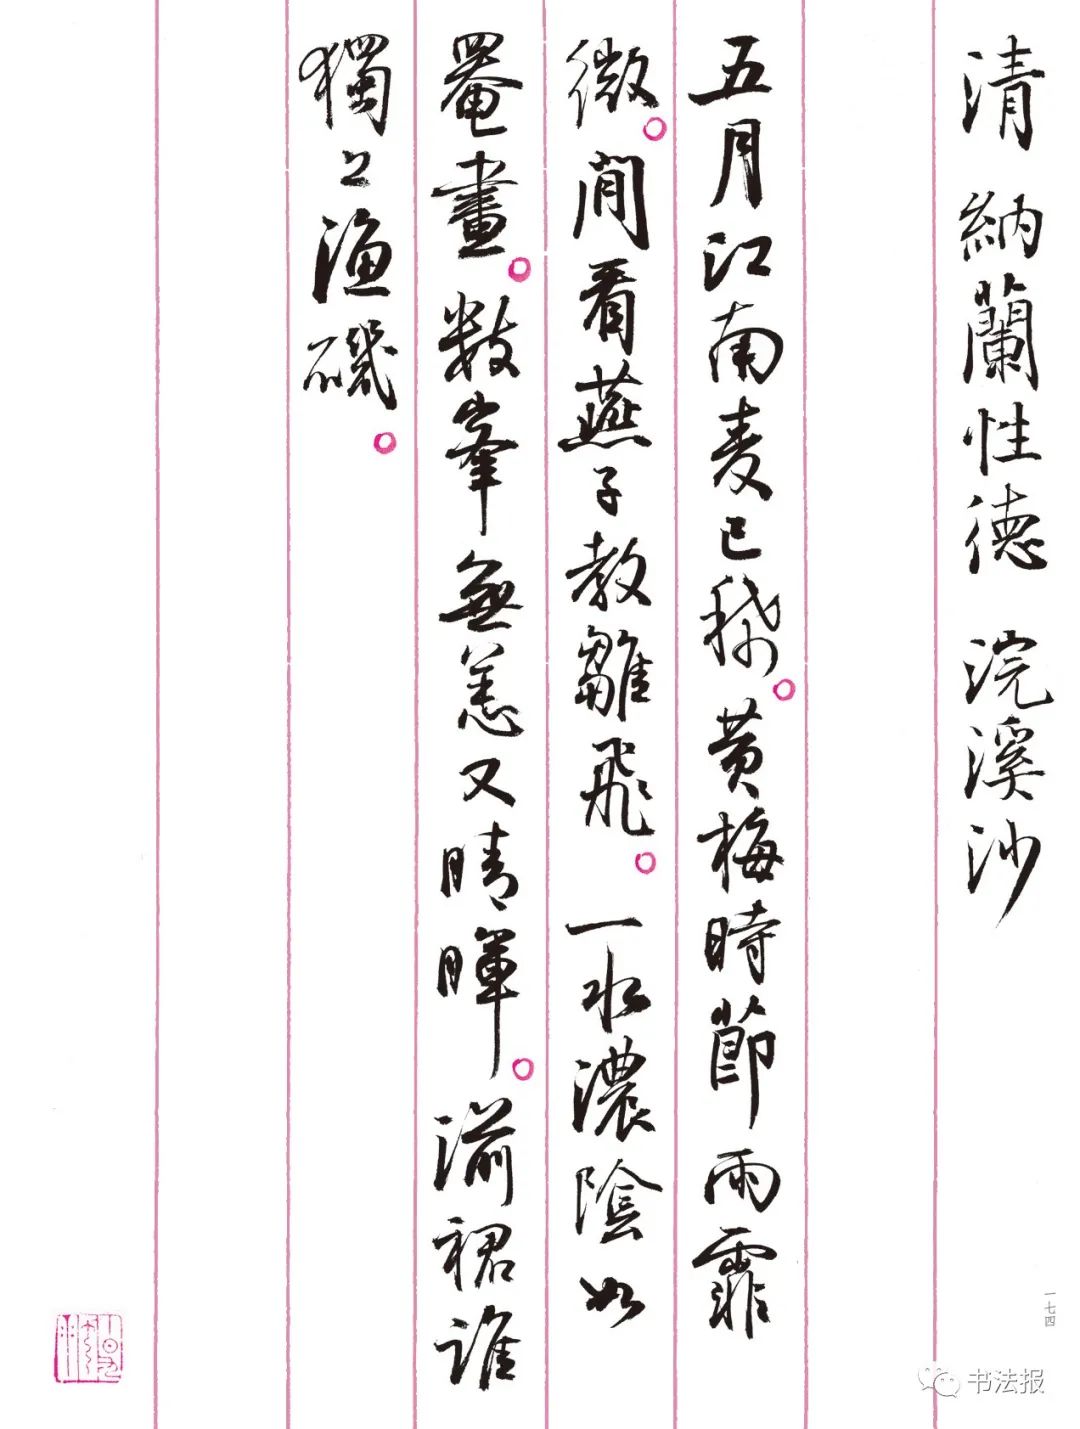 清 納蘭性德 浣溪沙
五月江南麦已稀。黄梅時節雨霏
微。閒看燕子教雛飛。 一水濃陰如
罨畫。數峯無恙又晴暉。湔裙誰
獨上漁磯。
一七四
书法报